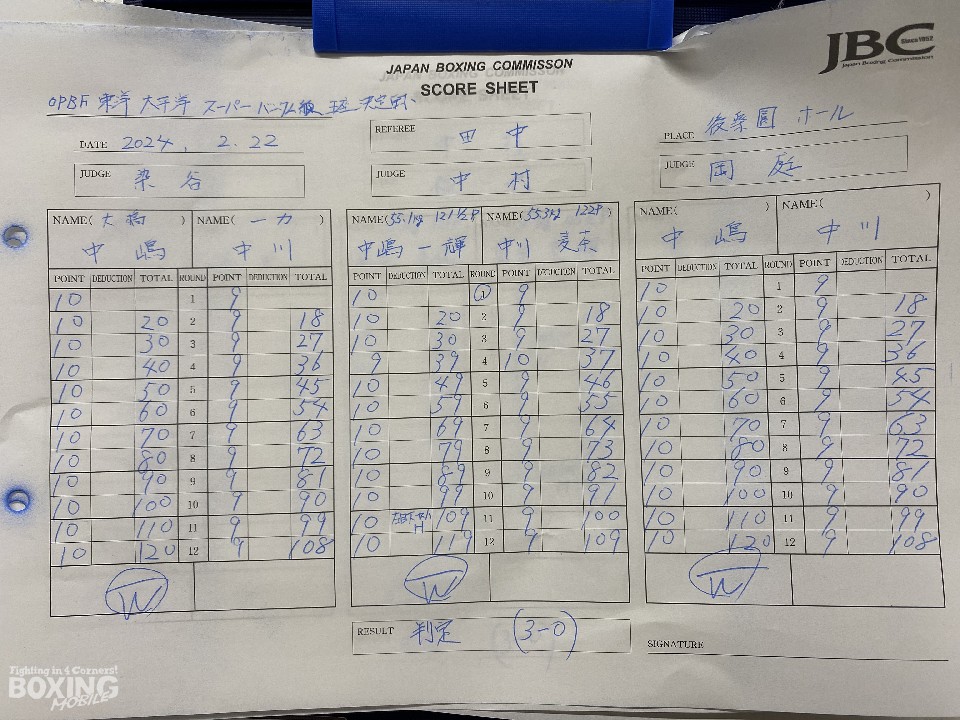 JAPAN BOXING COMMISSON
SCORE SHEET
JBC Since 1952
Japan Boxing Commission
OPBF 東洋太平洋 スーパーバンタム級 王座決定戦
DATE 2024. 2. 22
REFEREE 田中
PLACE 後楽園ホール
JUDGE 染谷
JUDGE 中村
JUDGE 岡庭
NAME( 大橋 ) NAME( 一力 )
中嶋 中川
POINT DEDUCTION TOTAL ROUND POINT DEDUCTION TOTAL
10 1 9
10 20 2 9 18
10 30 3 9 27
10 40 4 9 36
10 50 5 9 45
10 60 6 9 54
10 70 7 9 63
10 80 8 9 72
10 90 9 9 81
10 100 10 9 90
10 110 11 9 99
10 120 12 9 108
W
NAME( 55.1kg 121 1/2P NAME( 55.3kg 122P
中嶋 一輝 中川 麦茶
POINT DEDUCTION TOTAL ROUND POINT DEDUCTION TOTAL
10 1 9
10 20 2 9 18
10 30 3 9 27
9 39 4 10 37
10 49 5 9 46
10 59 6 9 55
10 69 7 9 64
10 79 8 9 73
10 89 9 9 82
10 99 10 9 91
10 109 11 9 100
10 119 12 9 109
W
NAME( ) NAME( )
中嶋 中川
POINT DEDUCTION TOTAL ROUND POINT DEDUCTION TOTAL
10 1 9
10 20 2 9 18
10 30 3 9 27
10 40 4 9 36
10 50 5 9 45
10 60 6 9 54
10 70 7 9 63
10 80 8 9 72
10 90 9 9 81
10 100 10 9 90
10 110 11 9 99
10 120 12 9 108
W
RESULT 判定 (3-0)
SIGNATURE
Fighting in 4 Corners!
BOXING
MOBILE